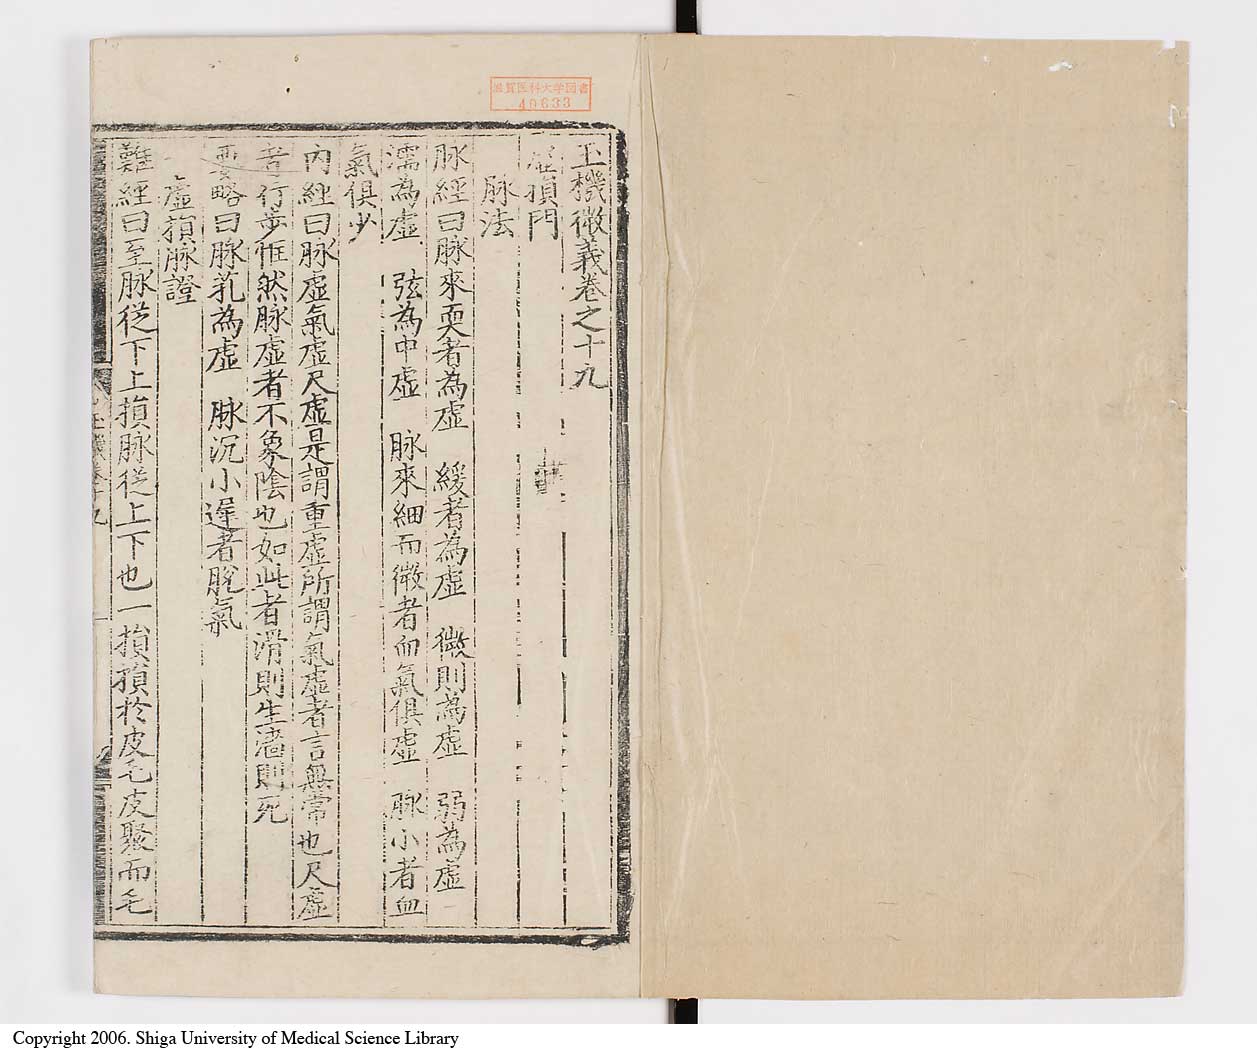 滋賀医科大学図書
40633
玉機微義卷之十九
虛損門
脉法
脉經曰脉來耎者為虛 緩者為虛 微則為虛 弱為虛
濡為虛 弦為中虛 脉來細而微者血氣俱虛 脉小者血
氣俱少
內經曰脉虛氣虛尺虛是謂重虛所謂氣虛者言無常也尺虛
者行步恇然脉虛者不象陰也如此者滑則生濇則死
要略曰脉芤為虛 脉沉小遲者脫氣
虛損脉證
難經曰至脉從下上損脉從上下也一損損於皮毛皮聚而毛
玉機卷十九
Copyright 2006. Shiga University of Medical Science Library